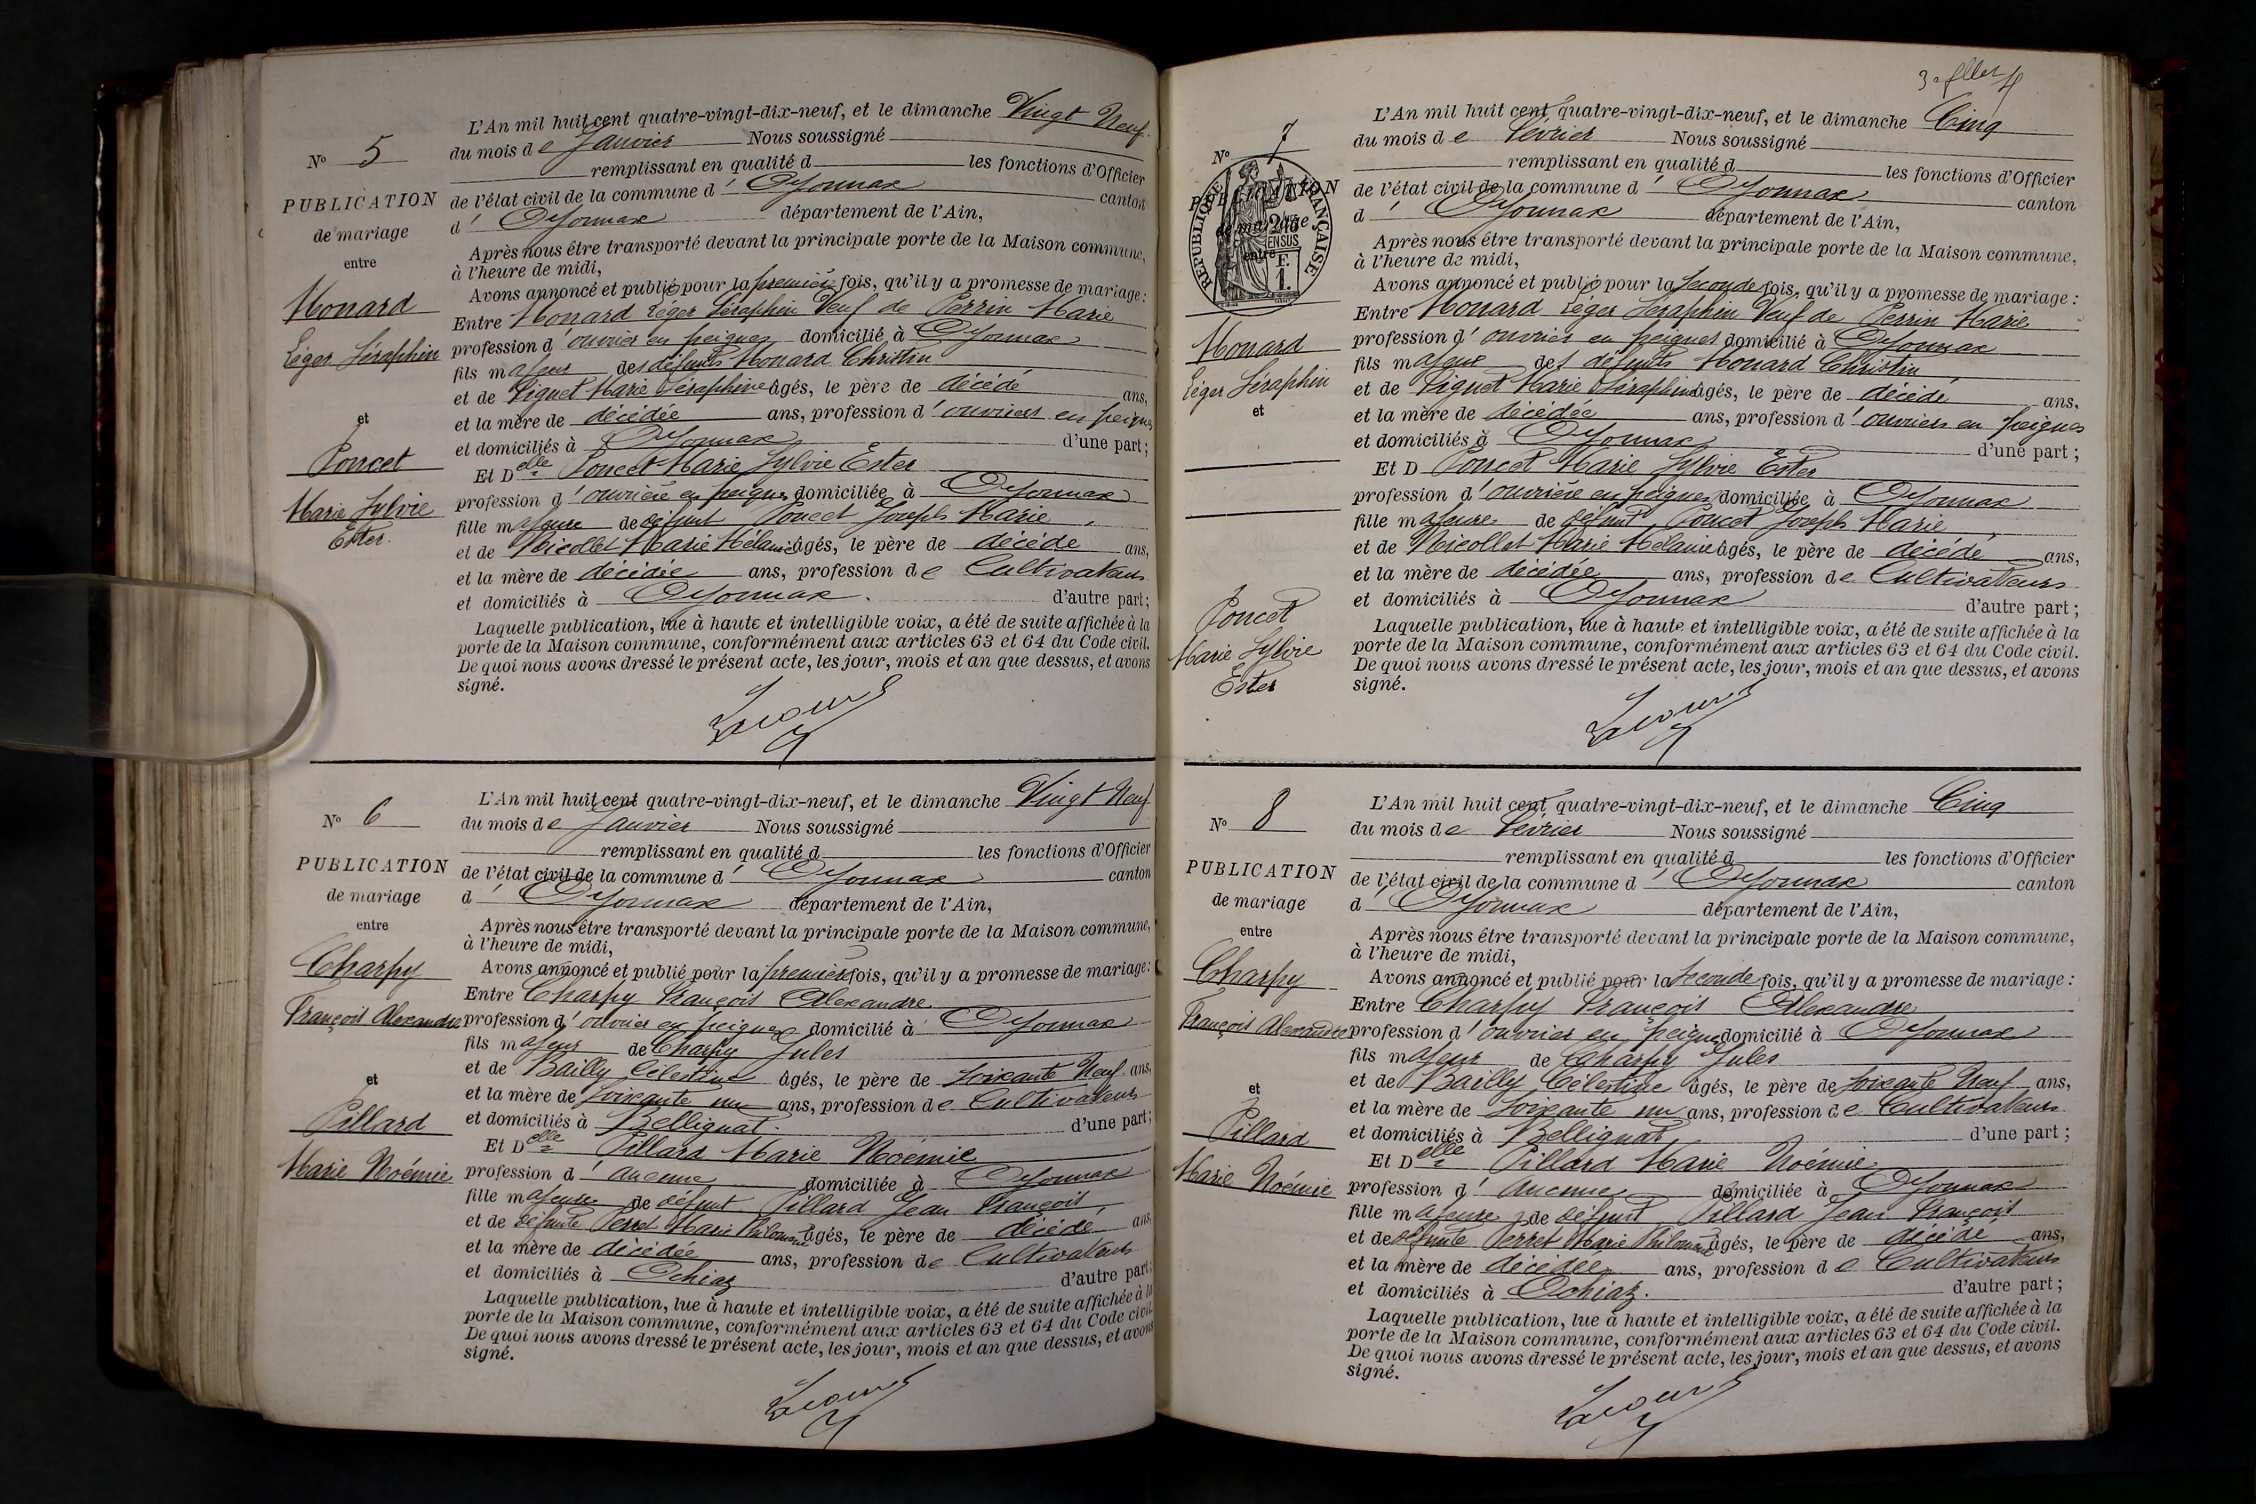 N° 5
PUBLICATION
de mariage
entre
Monard
Léger Séraphin
et
Poncet
Marie Sylvie
Ester
L'An mil huit cent quatre-vingt-dix-neuf, et le dimanche Vingt Neuf
du mois de Janvier Nous soussigné
remplissant en qualité d les fonctions d'Officier
de l'état civil de la commune d' Oyonnax canton
d' Oyonnax département de l'Ain,
Après nous être transporté devant la principale porte de la Maison commune,
à l'heure de midi,
Avons annoncé et publié pour la première fois, qu'il y a promesse de mariage :
Entre Monard Léger Séraphin Veuf de Perrin Marie
profession d'ouvrier en peignes domicilié à Oyonnax
fils majeur des défunts Monard Christin
et de Piguet Marie Séraphine âgés, le père de décédé ans,
et la mère de décédée ans, profession d'ouvriers en peignes
et domiciliés à Oyonnax d'une part ;
Et Delle Poncet Marie Sylvie Ester
profession d'ouvrière en peignes domiciliée à Oyonnax
fille majeure de défunt Poncet Joseph Marie
et de Nicollet Marie Mélanie âgés, le père de décédé ans,
et la mère de décédée ans, profession de Cultivateurs
et domiciliés à Oyonnax. d'autre part ;
Laquelle publication, lue à haute et intelligible voix, a été de suite affichée à la
porte de la Maison commune, conformément aux articles 63 et 64 du Code civil.
De quoi nous avons dressé le présent acte, les jour, mois et an que dessus, et avons
signé.
N° 6
PUBLICATION
de mariage
entre
Charpy
François Alexandre
et
Pillard
Marie Noémie
L'An mil huit cent quatre-vingt-dix-neuf, et le dimanche Vingt Neuf
du mois de Janvier Nous soussigné
remplissant en qualité d les fonctions d'Officier
de l'état civil de la commune d' Oyonnax canton
d' Oyonnax département de l'Ain,
Après nous être transporté devant la principale porte de la Maison commune,
à l'heure de midi,
Avons annoncé et publié pour la première fois, qu'il y a promesse de mariage :
Entre Charpy François Alexandre
profession d'ouvrier en peignes domicilié à Oyonnax
fils majeur de Charpy Jules
et de Bailly Célestine âgés, le père de soixante Neuf ans,
et la mère de soixante un ans, profession de Cultivateurs
et domiciliés à Bellignat. d'une part ;
Et Delle Pillard Marie Noémie
profession d'aucune domiciliée à Oyonnax
fille majeure de défunt Pillard Jean François
et de défunte Perret Marie Philomène âgés, le père de décédé ans,
et la mère de décédée ans, profession de Cultivateurs
et domiciliés à Ochiaz d'autre part ;
Laquelle publication, lue à haute et intelligible voix, a été de suite affichée à la
porte de la Maison commune, conformément aux articles 63 et 64 du Code civil.
De quoi nous avons dressé le présent acte, les jour, mois et an que dessus, et avons
signé.
N° 7
PUBLICATION
de mariage
entre
RÉPUBLIQUE FRANÇAISE
2/10
EN SUS
F.
1.
Monard
Léger Séraphin
et
Poncet
Marie Sylvie
Ester
L'An mil huit cent quatre-vingt-dix-neuf, et le dimanche Cinq
du mois de Février Nous soussigné
remplissant en qualité d les fonctions d'Officier
de l'état civil de la commune d' Oyonnax canton
d' Oyonnax département de l'Ain,
Après nous être transporté devant la principale porte de la Maison commune,
à l'heure de midi,
Avons annoncé et publié pour la seconde fois, qu'il y a promesse de mariage :
Entre Monard Léger Séraphin Veuf de Perrin Marie
profession d'ouvrier en peignes domicilié à Oyonnax
fils majeur des défunts Monard Christin
et de Piguet Marie Séraphine âgés, le père de décédé ans,
et la mère de décédée ans, profession d'ouvriers en peignes
et domiciliés à Oyonnax d'une part ;
Et D Poncet Marie Sylvie Ester
profession d'ouvrière en peignes domiciliée à Oyonnax
fille majeure de défunt Poncet Joseph Marie
et de Nicollet Marie Mélanie âgés, le père de décédé ans,
et la mère de décédée ans, profession de Cultivateurs
et domiciliés à Oyonnax d'autre part ;
Laquelle publication, lue à haute et intelligible voix, a été de suite affichée à la
porte de la Maison commune, conformément aux articles 63 et 64 du Code civil.
De quoi nous avons dressé le présent acte, les jour, mois et an que dessus, et avons
signé.
N° 8
PUBLICATION
de mariage
entre
Charpy
François Alexandre
et
Pillard
Marie Noémie
L'An mil huit cent quatre-vingt-dix-neuf, et le dimanche Cinq
du mois de Février Nous soussigné
remplissant en qualité d les fonctions d'Officier
de l'état civil de la commune d' Oyonnax canton
d' Oyonnax département de l'Ain,
Après nous être transporté devant la principale porte de la Maison commune,
à l'heure de midi,
Avons annoncé et publié pour la seconde fois, qu'il y a promesse de mariage :
Entre Charpy François Alexandre
profession d'ouvrier en peignes domicilié à Oyonnax
fils majeur de Charpy Jules
et de Bailly Célestine âgés, le père de soixante Neuf ans,
et la mère de soixante un ans, profession de Cultivateurs
et domiciliés à Bellignat d'une part ;
Et Delle Pillard Marie Noémie
profession d'aucune domiciliée à Oyonnax
fille majeure de défunt Pillard Jean François
et de défunte Perret Marie Philomène âgés, le père de décédé ans,
et la mère de décédée ans, profession de Cultivateurs
et domiciliés à Ochiaz. d'autre part ;
Laquelle publication, lue à haute et intelligible voix, a été de suite affichée à la
porte de la Maison commune, conformément aux articles 63 et 64 du Code civil.
De quoi nous avons dressé le présent acte, les jour, mois et an que dessus, et avons
signé.